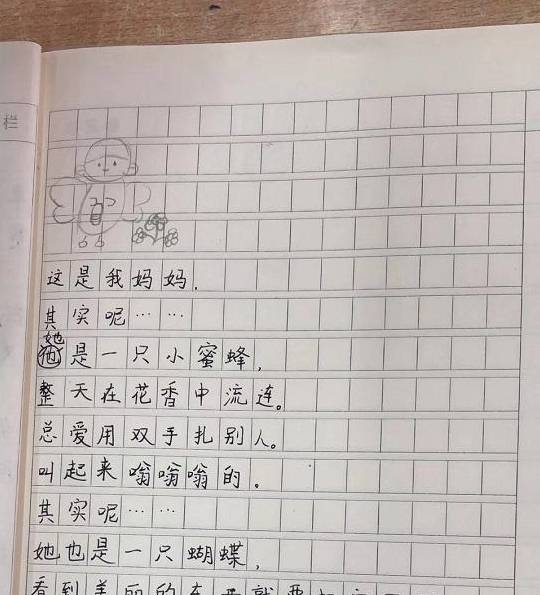 栏
这是我妈妈.
其实呢……
她
他是一只小蜜蜂,
整天在花香中流连。
总爱用双手扎别人。
叫起来嗡嗡嗡的.
其实呢……
她也是一只蝴蝶,
看到美丽的东西就要